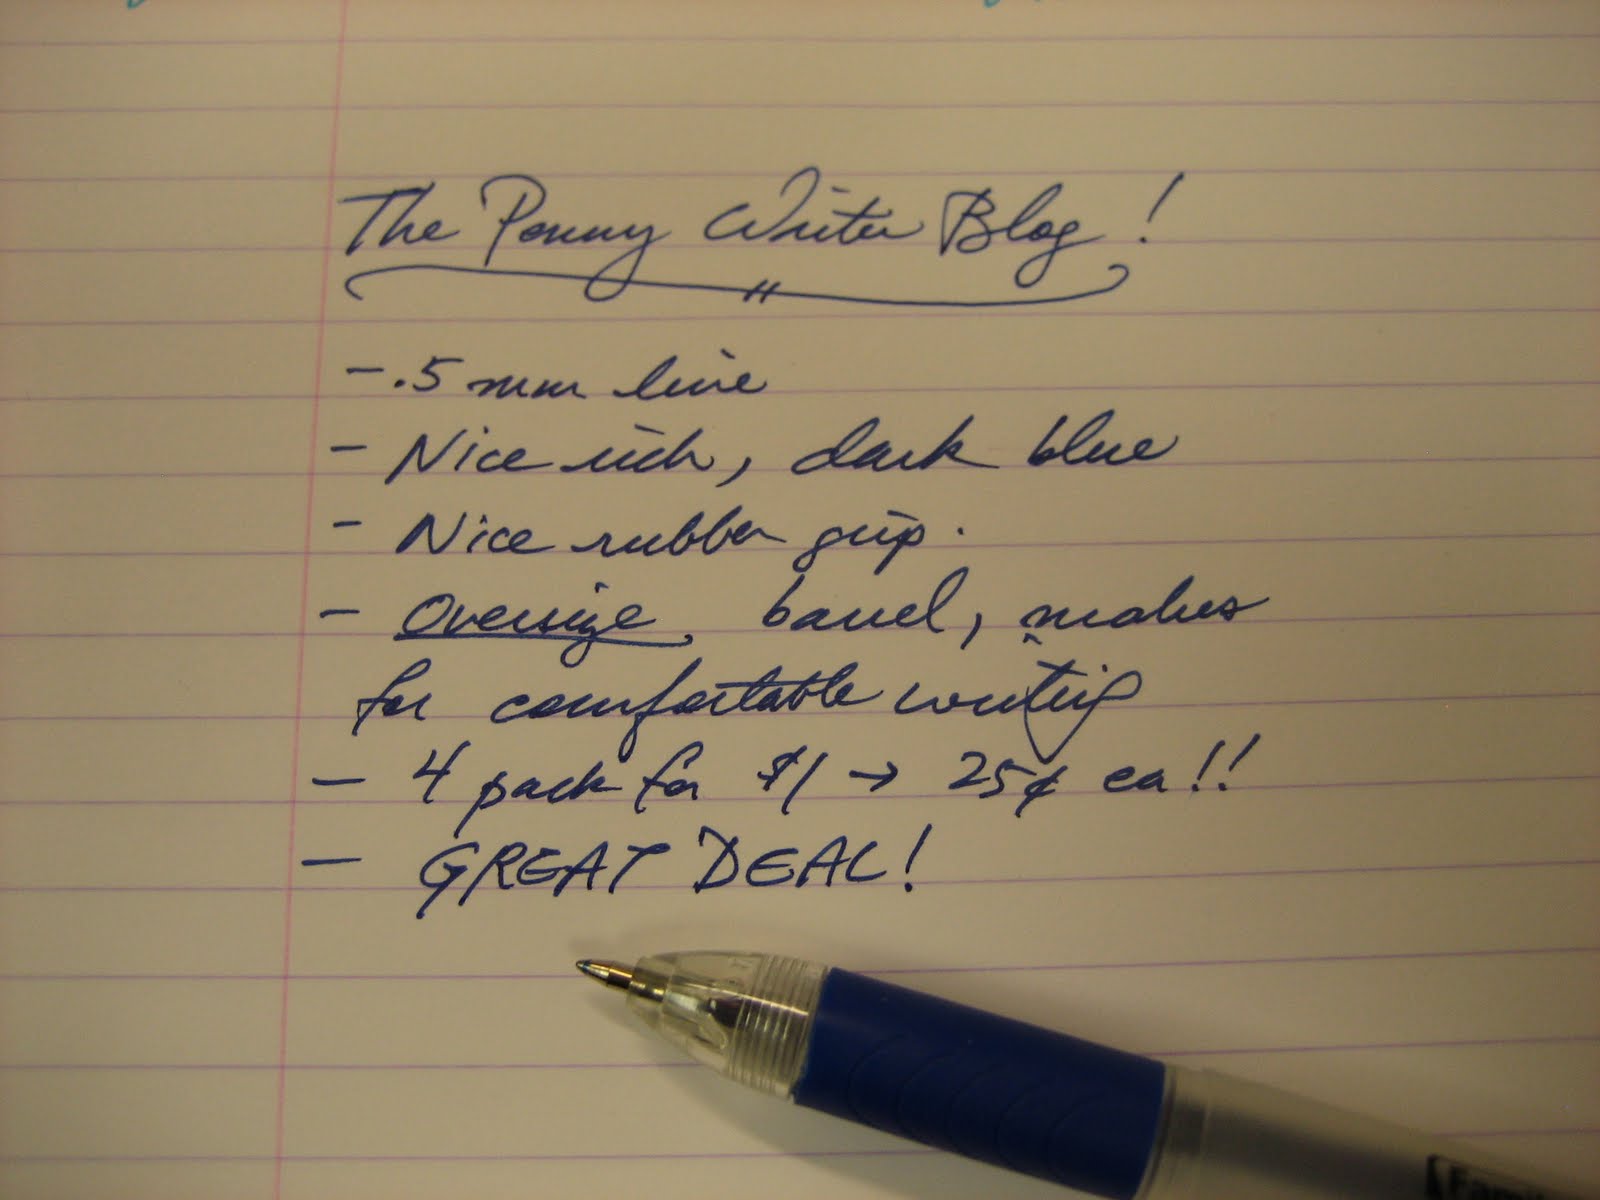 The Penny Writer Blog!
- .5 mm line
- Nice rich, dark blue
- Nice rubber grip.
- Oversize barrel, makes
for comfortable writing
- 4 pack for $1 → 25¢ ea!!
- GREAT DEAL!